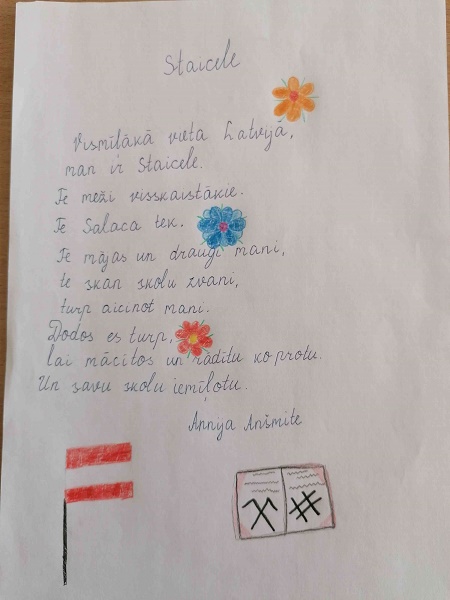 Staicele
Vismīļākā vieta Latvijā,
man ir Staicele.
Te meži visskaistākie.
Te Salaca tek.
Te mājas un draugi mani,
te skan skolu zvani,
turp aicinot mani.
Dodos es turp,
lai mācītos un rādītu ko protu.
Un savu skolu iemīļotu.
Annija Anšmite